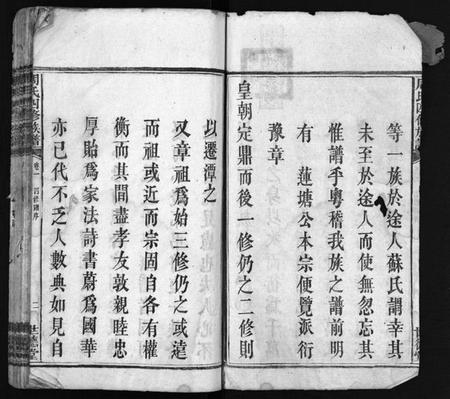 等一族於途人蘇氏謂幸其
未至於途人而使無忽忘其
惟譜乎粵稽我族之譜前明
有蓮塘公本宗便覽派衍
豫章
皇朝定鼎而後一修仍之二修則
以遷潭之
又章祖為始三修仍之或遠
而祖或近而宗固自各有權
衡而其間盡孝友敦親睦忠
厚貽為家法詩書蔚為國華
亦已代不乏人數典如見自
周氏四修族譜
卷一
二